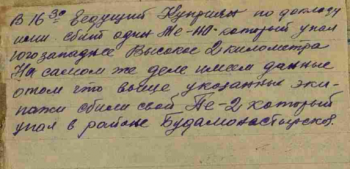 В 16 30 Ведущий Куприян по докладу
ими сбит один Ме-110 который упал
Югозападнее Высокое 2 километра
На самом же деле имеем данные
отом что выше указанные эки-
пажи сбили свой Пе-2 который
упал в районе Будамонастырской.